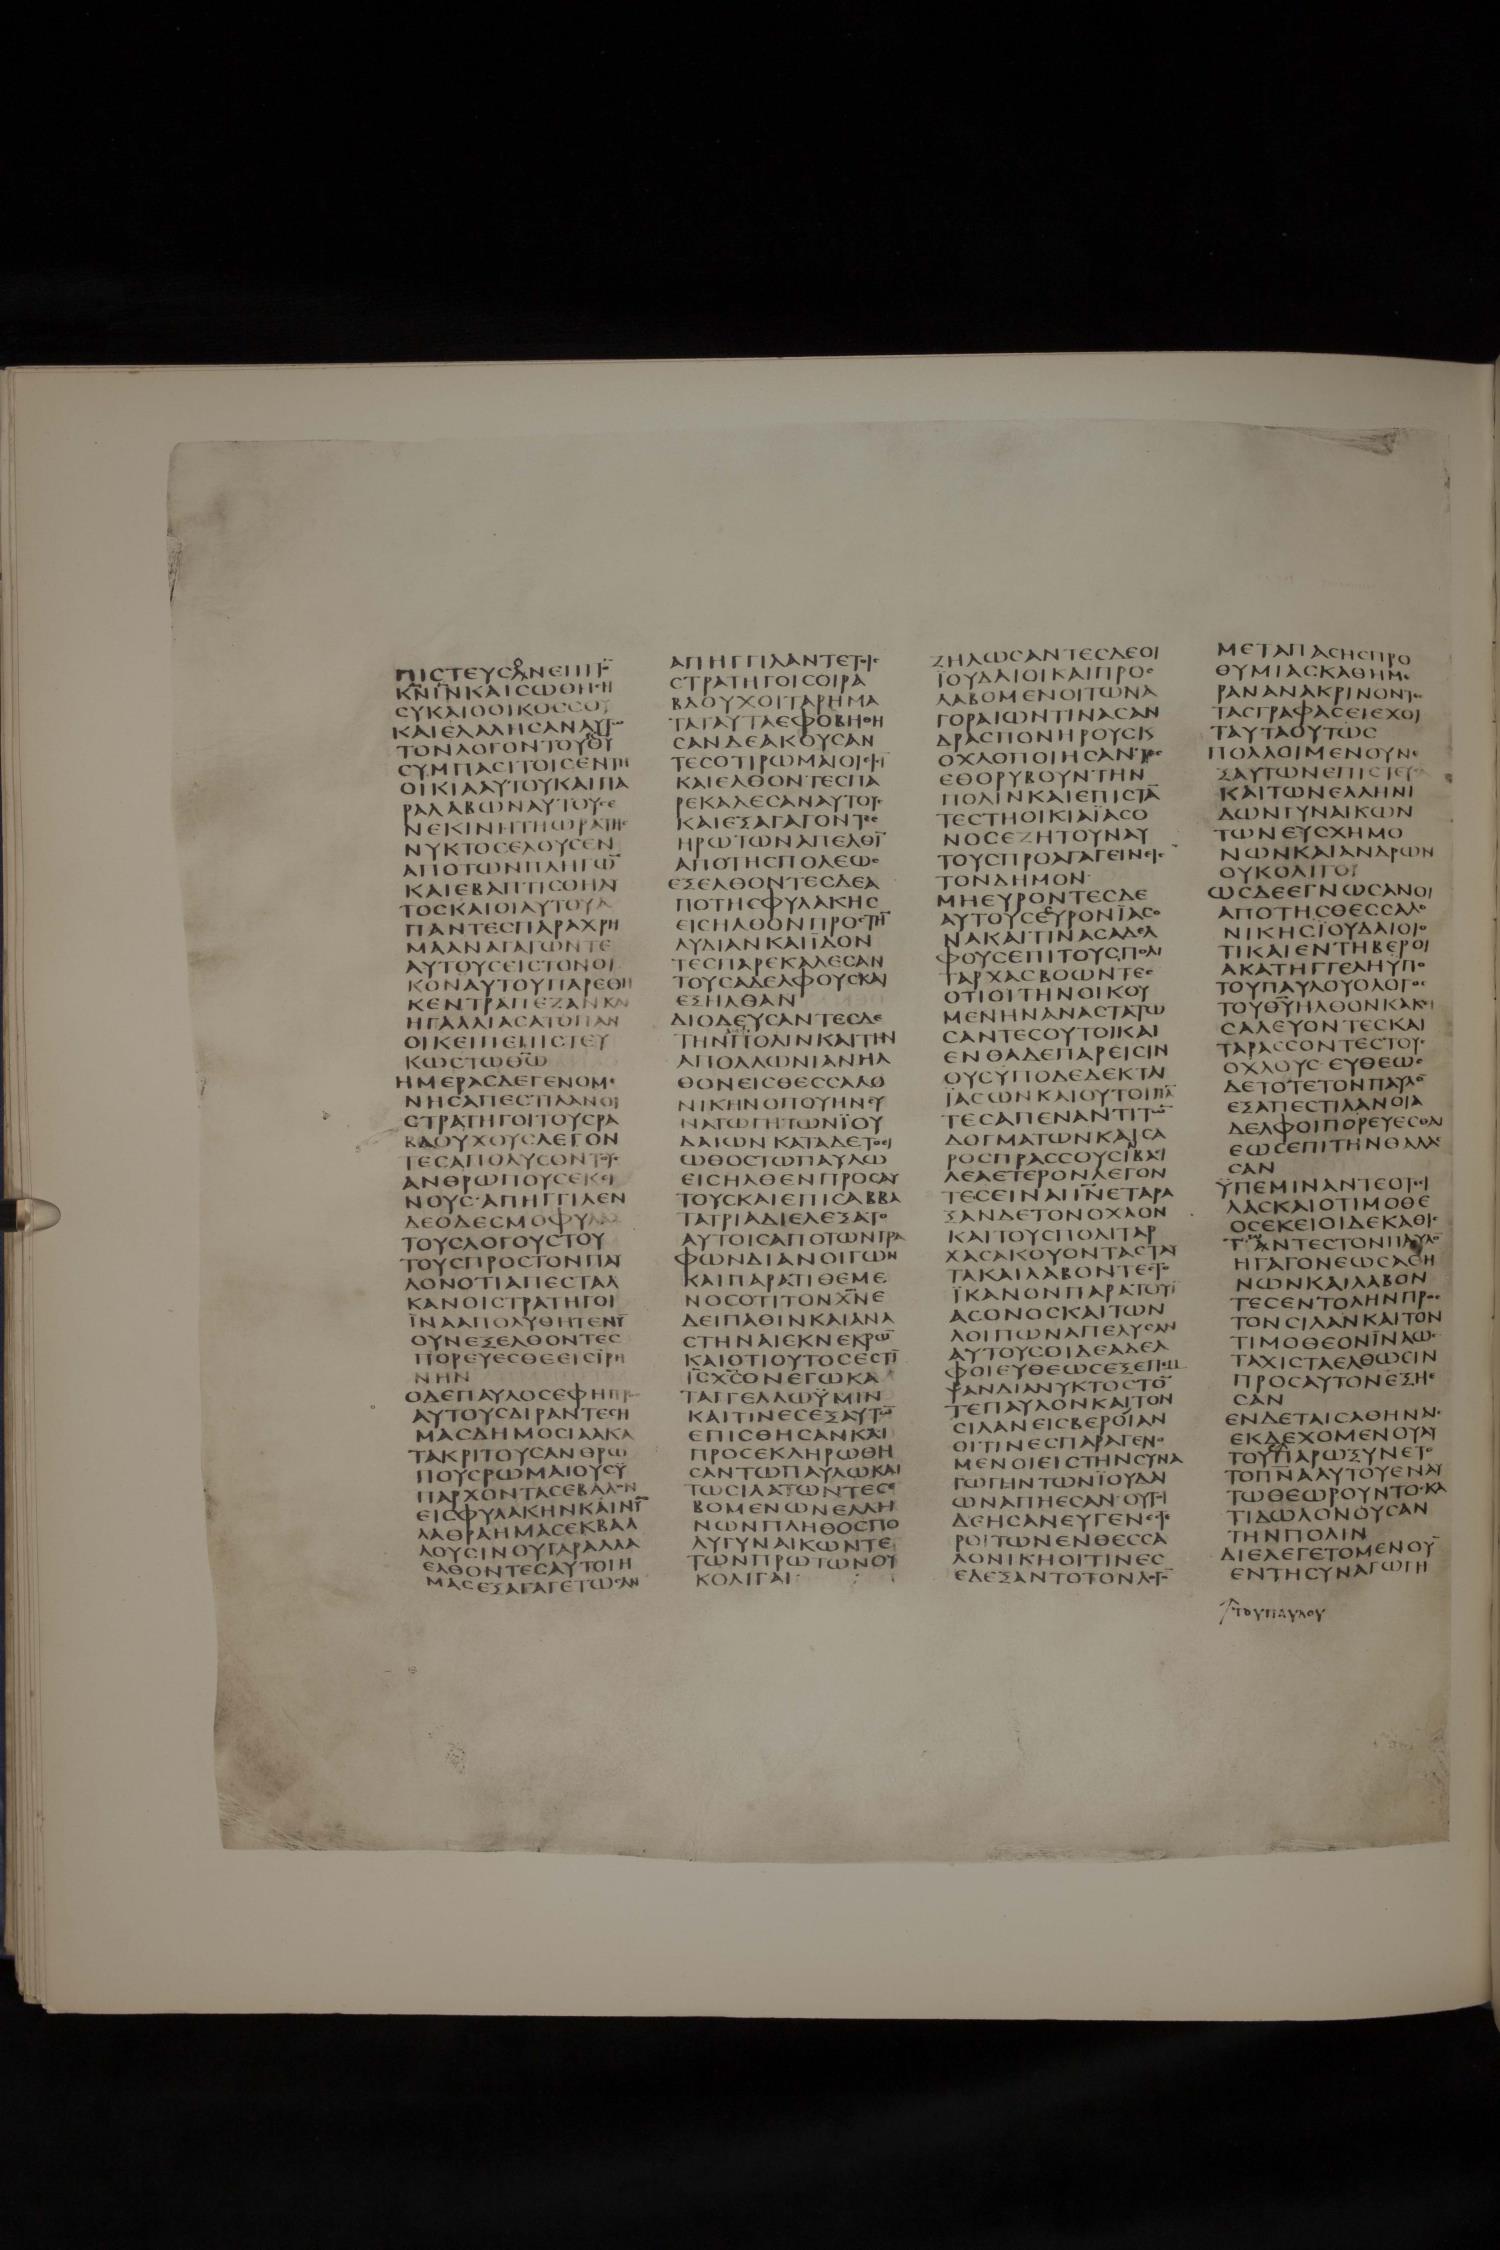 ΠΙϹΤΕΥϹΟΝΕΠΙΤΟ̅
Κ̅Ν̅Ι̅Ν̅ΚΑΙϹΩΘΗϹΗ
ϹΥΚΑΙΟΟΙΚΟϹϹΟΥ
ΚΑΙΕΛΑΛΗϹΑΝΑΥΤΩ
ΤΟΝΛΟΓΟΝΤΟΥΘ̅Υ̅
ϹΥΜΠΑϹΙΤΟΙϹΕΝΤΗ
ΟΙΚΙΑΑΥΤΟΥΚΑΙΠΑ
ΡΑΛΑΒΩΝΑΥΤΟΥϹΕ
ΝΕΚΙΝΗΤΗΩΡΑΤΗϹ
ΝΥΚΤΟϹΕΛΟΥϹΕΝ
ΑΠΟΤΩΝΠΛΗΓΩ̅
ΚΑΙΕΒΑΠΤΙϹΘΗΑΥ
ΤΟϹΚΑΙΟΙΑΥΤΟΥΑ
ΠΑΝΤΕϹΠΑΡΑΧΡΗ
ΜΑΑΝΑΓΑΓΩΝΤΕ
ΑΥΤΟΥϹΕΙϹΤΟΝΟΙ
ΚΟΝΑΥΤΟΥΠΑΡΕΘΗ
ΚΕΝΤΡΑΠΕΖΑΝΚΑΙ
ΗΓΑΛΛΙΑϹΑΤΟΠΑΝ
ΟΙΚΕΙΠΕΠΙϹΤΕΥ
ΚΩϹΤΩΘ̅Ω̅
ΗΜΕΡΑϹΔΕΓΕΝΟΜΕ
ΝΗϹΑΠΕϹΤΙΛΑΝΟΙ
ϹΤΡΑΤΗΓΟΙΤΟΥϹΡΑ
ΒΔΟΥΧΟΥϹΛΕΓΟΝ
ΤΕϹΑΠΟΛΥϹΟΝΤΟΥϹ
ΑΝΘΡΩΠΟΥϹΕΚΕΙ
ΝΟΥϹΑΠΗΓΓΙΛΕΝ
ΔΕΟΔΕϹΜΟΦΥΛΑΞ
ΤΟΥϹΛΟΓΟΥϹΤΟΥ
ΤΟΥϹΠΡΟϹΤΟΝΠΑΥ
ΛΟΝΟΤΙΑΠΕϹΤΑΛ
ΚΑΝΟΙϹΤΡΑΤΗΓΟΙ
ΪΝΑΑΠΟΛΥΘΗΤΕΝΥ̅
ΟΥΝΕΞΕΛΘΟΝΤΕϹ
ΠΟΡΕΥΕϹΘΕΕΙϹΪΡΗ
ΝΗΝ
ΟΔΕΠΑΥΛΟϹΕΦΗΠΡΟϹ
ΑΥΤΟΥϹΔΙΡΑΝΤΕϹΗ
ΜΑϹΔΗΜΟϹΙΑΑΚΑ
ΤΑΚΡΙΤΟΥϹΑΝΘΡΩ
ΠΟΥϹΡΩΜΑΙΟΥϹΫ
ΠΑΡΧΟΝΤΑϹΕΒΑΛΟΝ
ΕΙϹΦΥΛΑΚΗΝΚΑΙΝΥ̅
ΛΑΘΡΑΗΜΑϹΕΚΒΑΛ
ΛΟΥϹΙΝΟΥΓΑΡΑΛΛΑ
ΕΛΘΟΝΤΕϹΑΥΤΟΙΗ
ΜΑϹΕΞΑΓΑΓΕΤΩϹΑΝ
ΑΠΗΓΓΙΛΑΝΤΕΤΟΙϹ
ϹΤΡΑΤΗΓΟΙϹΟΙΡΑ
ΒΔΟΥΧΟΙΤΑΡΗΜΑ
ΤΑΤΑΥΤΑΕΦΟΒΗΘΗ
ϹΑΝΔΕΑΚΟΥϹΑΝ
ΤΕϹΟΤΙΡΩΜΑΙΟΙΕΙϹΙ
ΚΑΙΕΛΘΟΝΤΕϹΠΑ
ΡΕΚΑΛΕϹΑΝΑΥΤΟΥϹ
ΚΑΙΕΞΑΓΑΓΟΝΤΕϹ
ΗΡΩΤΩΝΑΠΕΛΘΙ̅
ΑΠΟΤΗϹΠΟΛΕΩϹ
ΕΞΕΛΘΟΝΤΕϹΔΕΑ
ΠΟΤΗϹΦΥΛΑΚΗϹ
ΕΙϹΗΛΘΟΝΠΡΟϹΤΗ̅
ΛΥΔΙΑΝΚΑΙΪΔΟΝ
ΤΕϹΠΑΡΕΚΑΛΕϹΑΝ
ΤΟΥϹΑΔΕΛΦΟΥϹΚΑΙ
ΕΞΗΛΘΑΝ
ΔΙΟΔΕΥϹΑΝΤΕϹΔΕ
ΤΗΝΠΟΛΙΝΚΑΙΤΗΝ
ΑΠΟΛΛΩΝΙΑΝΗΛ
ΘΟΝΕΙϹΘΕϹϹΑΛΟ
ΝΙΚΗΝΟΠΟΥΗΝϹΥ
ΝΑΓΩΓΗΤΩΝΪΟΥ
ΔΑΙΩΝΚΑΤΑΔΕΤΟΕΙ
ΩΘΟϹΤΩΠΑΥΛΩ
ΕΙϹΗΛΘΕΝΠΡΟϹΑΥ
ΤΟΥϹΚΑΙΕΠΙϹΑΒΒΑ
ΤΑΤΡΙΑΔΙΕΛΕΞΑΤΟ
ΑΥΤΟΙϹΑΠΟΤΩΝΓΡΑ
ΦΩΝΔΙΑΝΟΙΓΩΝ
ΚΑΙΠΑΡΑΤΙΘΕΜΕ
ΝΟϹΟΤΙΤΟΝΧ̅Ν̅Ε
ΔΕΙΠΑΘΙΝΚΑΙΑΝΑ
ϹΤΗΝΑΙΕΚΝΕΚΡΩ̅
ΚΑΙΟΤΙΟΥΤΟϹΕϹΤΙ̅
Ι̅Ϲ̅Χ̅Ϲ̅ΟΝΕΓΩΚΑ
ΤΑΓΓΕΛΛΩΫΜΙΝ
ΚΑΙΤΙΝΕϹΕΞΑΥΤΩ̅
ΕΠΙϹΘΗϹΑΝΚΑΙ
ΠΡΟϹΕΚΛΗΡΩΘΗ
ϹΑΝΤΩΠΑΥΛΩΚΑΙ
ΤΩϹΙΛΑΤΩΝΤΕϹΕ
ΒΟΜΕΝΩΝΕΛΛΗ
ΝΩΝΠΛΗΘΟϹΠΟ
ΛΥΓΥΝΑΙΚΩΝΤΕ
ΤΩΝΠΡΩΤΩΝΟΥ
ΚΟΛΙΓΑΙ
ΖΗΛΩϹΑΝΤΕϹΔΕΟΙ
ΪΟΥΔΑΙΟΙΚΑΙΠΡΟϹ
ΛΑΒΟΜΕΝΟΙΤΩΝΑ
ΓΟΡΑΙΩΝΤΙΝΑϹΑΝ
ΔΡΑϹΠΟΝΗΡΟΥϹΚΑΙ
ΟΧΛΟΠΟΙΗϹΑΝΤΕϹ
ΕΘΟΡΥΒΟΥΝΤΗΝ
ΠΟΛΙΝΚΑΙΕΠΙϹΤΑ̅
ΤΕϹΤΗΟΙΚΙΑΪΑϹΟ
ΝΟϹΕΖΗΤΟΥΝΑΥ
ΤΟΥϹΠΡΟΑΓΑΓΕΙΝΕΙϹ
ΤΟΝΔΗΜΟΝ
ΜΗΕΥΡΟΝΤΕϹΔΕ
ΑΥΤΟΥϹΕϹΥΡΟΝΪΑϹΟ
ΝΑΚΑΙΤΙΝΑϹΑΔΕΛ
ΦΟΥϹΕΠΙΤΟΥϹΠΟΛΙ
ΤΑΡΧΑϹΒΟΩΝΤΕϹ
ΟΤΙΟΙΤΗΝΟΙΚΟΥ
ΜΕΝΗΝΑΝΑϹΤΑΤΩ
ϹΑΝΤΕϹΟΥΤΟΙΚΑΙ
ΕΝΘΑΔΕΠΑΡΕΙϹΙΝ
ΟΥϹΫΠΟΔΕΔΕΚΤΑΙ
ΪΑϹΩΝΚΑΙΟΥΤΟΙΠΑ̅
ΤΕϹΑΠΕΝΑΝΤΙΤΩ̅
ΔΟΓΜΑΤΩΝΚΑΙϹΑ
ΡΟϹΠΡΑϹϹΟΥϹΙΒΑϹΙ
ΛΕΑΕΤΕΡΟΝΛΕΓΟΝ
ΤΕϹΕΙΝΑΙΙ̅Ν̅ΕΤΑΡΑ
ΞΑΝΔΕΤΟΝΟΧΛΟΝ
ΚΑΙΤΟΥϹΠΟΛΙΤΑΡ
ΧΑϹΑΚΟΥΟΝΤΑϹΤΑΥ
ΤΑΚΑΙΛΑΒΟΝΤΕϹΤΟ
ΪΚΑΝΟΝΠΑΡΑΤΟΥΪ
ΑϹΟΝΟϹΚΑΙΤΩΝ
ΛΟΙΠΩΝΑΠΕΛΥϹΑΝ
ΑΥΤΟΥϹΟΙΔΕΑΔΕΛ
ΦΟΙΕΥΘΕΩϹΕΞΕΠΕΜ
ΨΑΝΔΙΑΝΥΚΤΟϹΤΟ̅
ΤΕΠΑΥΛΟΝΚΑΙΤΟΝ
ϹΙΛΑΝΕΙϹΒΕΡΟΙΑΝ
ΟΙΤΙΝΕϹΠΑΡΑΓΕΝΟ
ΜΕΝΟΙΕΙϹΤΗΝϹΥΝΑ
ΓΩΓΗΝΤΩΝΪΟΥΔΑΙ
ΩΝΑΠΗΕϹΑΝΟΥΤΟΙ
ΔΕΗϹΑΝΕΥΓΕΝΕϹΤΕ
ΡΟΙΤΩΝΕΝΘΕϹϹΑ
ΛΟΝΙΚΗΟΙΤΙΝΕϹ
ΕΔΕΞΑΝΤΟΤΟΝΛΟΓΟ̅
ΜΕΤΑΠΑϹΗϹΠΡΟ
ΘΥΜΙΑϹΚΑΘΗΜΕ
ΡΑΝΑΝΑΚΡΙΝΟΝΤΕϹ
ΤΑϹΓΡΑΦΑϹΕΙΕΧΟΙ
ΤΑΥΤΑΟΥΤΩϹ
ΠΟΛΛΟΙΜΕΝΟΥΝΕ
ΞΑΥΤΩΝΕΠΙϹΤΕΥ
ΚΑΙΤΩΝΕΛΛΗΝΙ
ΔΩΝΓΥΝΑΙΚΩΝ
ΤΩΝΕΥϹΧΗΜΟ
ΝΩΝΚΑΙΑΝΔΡΩΝ
ΟΥΚΟΛΙΓΟΙ
ΩϹΔΕΕΓΝΩϹΑΝΟΙ
ΑΠΟΤΗϹΘΕϹϹΑΛΟ
ΝΙΚΗϹΪΟΥΔΑΙΟΙΟ
ΤΙΚΑΙΕΝΤΗΒΕΡΟΙ
ΑΚΑΤΗΓΓΕΛΗΥΠΟ
ΤΟΥΠΑΥΛΟΥΟΛΟΓΟϹ
ΤΟΥΘ̅Υ̅ΗΛΘΟΝΚΑΚΕΙ
ϹΑΛΕΥΟΝΤΕϹΚΑΙ
ΤΑΡΑϹϹΟΝΤΕϹΤΟΥϹ
ΟΧΛΟΥϹΕΥΘΕΩϹ
ΔΕΤΟΤΕΤΟΝΠΑΥΛΟ̅
ΕΞΑΠΕϹΤΙΛΑΝΟΙΑ
ΔΕΛΦΟΙΠΟΡΕΥΕϹΘΑΙ
ΕΩϹΕΠΙΤΗΝΘΑΛΑϹ
ϹΑΝ
ΫΠΕΜΙΝΑΝΤΕΟΤΕϹΙ
ΛΑϹΚΑΙΟΤΙΜΟΘΕ
ΟϹΕΚΕΙΟΙΔΕΚΑΘΙϹ
ΤΑΝΤΕϹΤΟΝΠΑΥΛΟ̅
ΗΓΑΓΟΝΕΩϹΑΘΗ
ΝΩΝΚΑΙΛΑΒΟΝ
ΤΕϹΕΝΤΟΛΗΝΠΡΟϹ
ΤΟΝϹΙΛΑΝΚΑΙΤΟΝ
ΤΙΜΟΘΕΟΝΪΝΑΩϹ
ΤΑΧΙϹΤΑΕΛΘΩϹΙΝ
ΠΡΟϹΑΥΤΟΝΕΞΗΕ
ϹΑΝ
ΕΝΔΕΤΑΙϹΑΘΗΝΑΙϹ
ΕΚΔΕΧΟΜΕΝΟΥΑΥ
ΤΟΥΠΑΡΩΞΥΝΕΤΟ
ΤΟΠ̅Ν̅Α̅ΑΥΤΟΥΕΝΑΥ
ΤΩΘΕΩΡΟΥΝΤΟϹΚΑ
ΤΙΔΩΛΟΝΟΥϹΑΝ
ΤΗΝΠΟΛΙΝ
ΔΙΕΛΕΓΕΤΟΜΕΝΟΥ̅
ΕΝΤΗϹΥΝΑΓΩΓΗ
ΤΟΥΠΑΥΛΟΥ